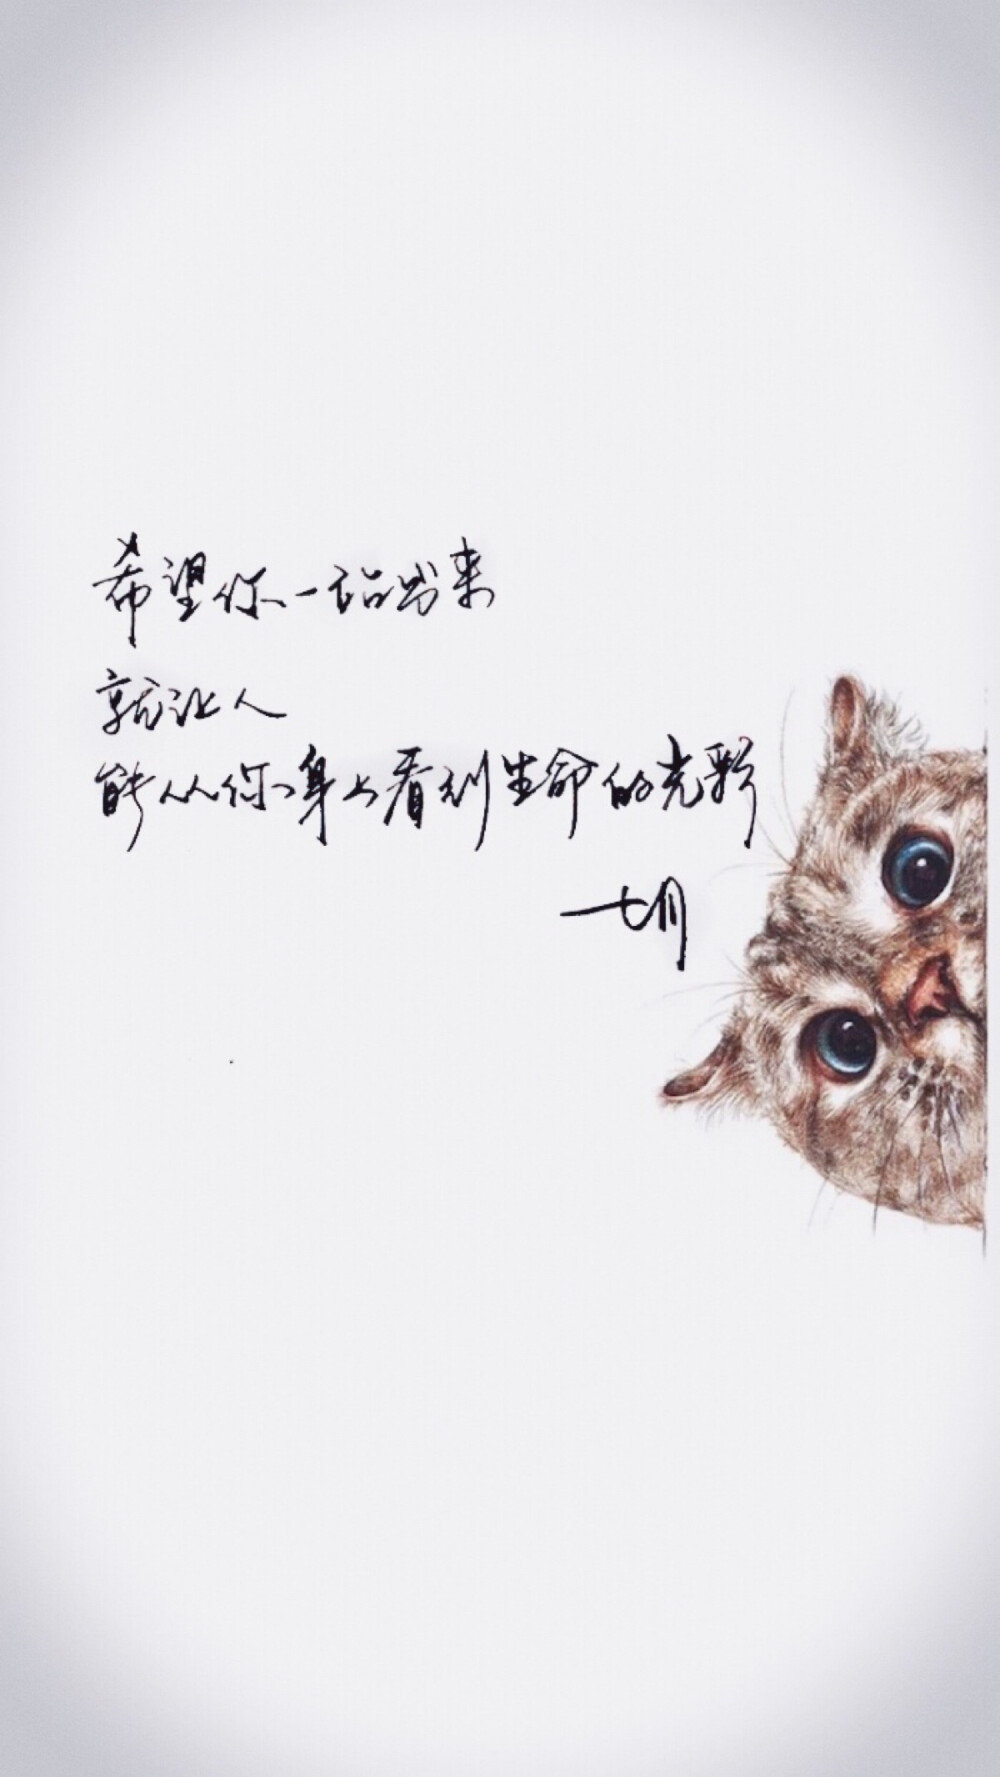 希望你一站出来
就让人
能从你身上看到生命的光彩